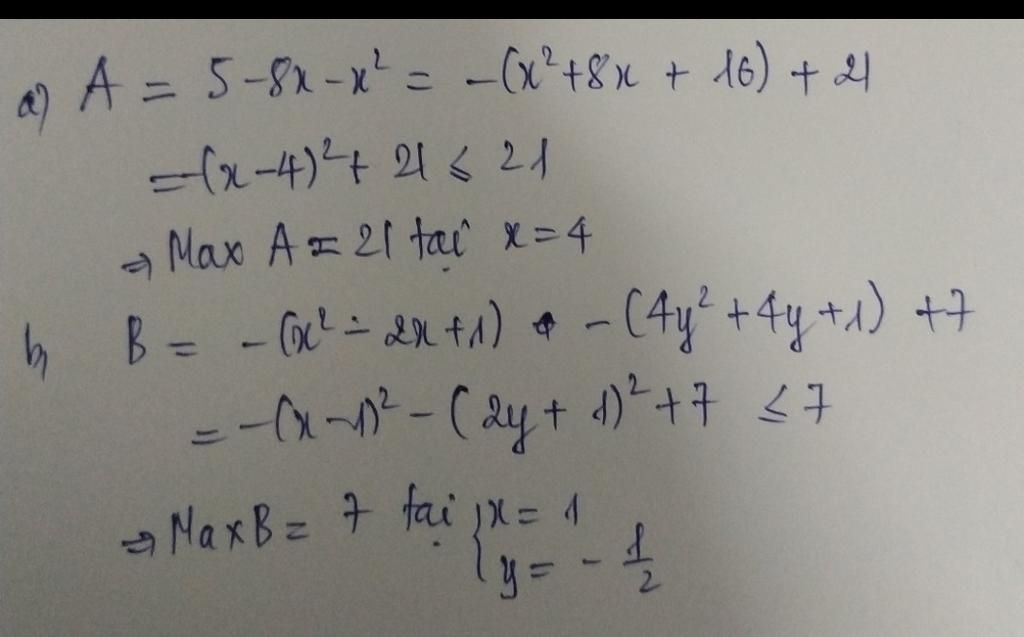 a) A = 5 - 8x - x² = -(x² + 8x + 16) + 21
= -(x - 4)² + 21 ≤ 21
⇒ Max A = 21 tại x = 4
b, B = -(x² - 2x + 1) - (4y² + 4y + 1) + 7
= -(x - 1)² - (2y + 1)² + 7 ≤ 7
⇒ Max B = 7 tại { x = 1
y = - 1/2